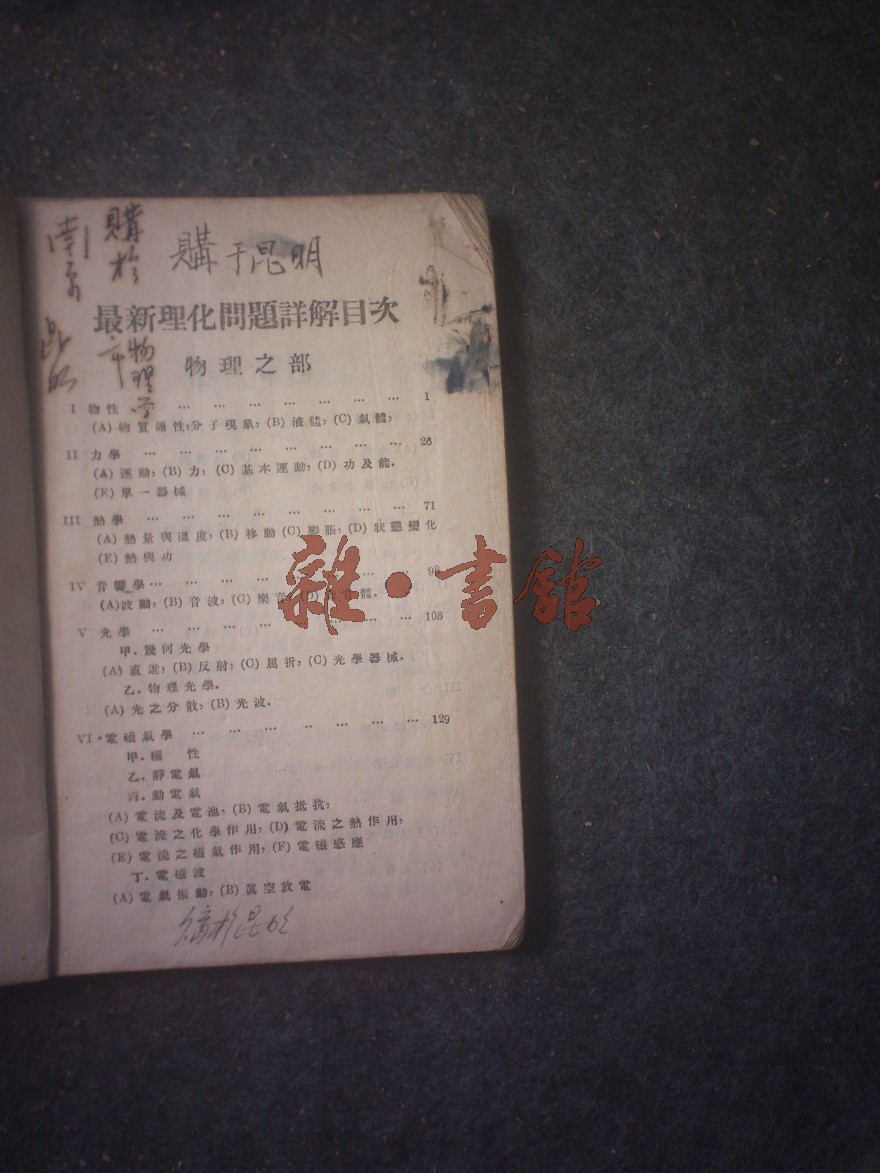 購於
購于昆明
最新理化問題詳解目次
物理學
物理之部
I 物性 … … … … … … … … 1
(A)物質通性,分子現象,(B)液體,(C)氣體,
II 力學 … … … … … … … … 26
(A)運動,(B)力,(C)基本運動,(D)功及能.
(E)單一器械
III 熱學 … … … … … … … … 71
(A)熱量與溫度,(B)移動(C)膨脹,(D)狀態變化
(E)熱與功
IV 音響學… … … …
(A)波動,(B)音波,(C)樂音
雜·書館
V 光學 … … … … … … … … 108
甲.幾何光學
(A)直進,(B)反射,(C)屈折,(C)光學器械.
乙.物理光學.
(A)光之分散,(B)光波.
VI.電磁氣學 … … … … … … … 129
甲.磁 性
乙.靜電氣
丙.動電氣
(A)電流及電池,(B)電氣抵抗,
(C)電流之化學作用,(D)電流之熱作用,
(E)電流之磁氣作用,(F)電磁感應
丁.電磁波
(A)電氣振動,(B)眞空放電